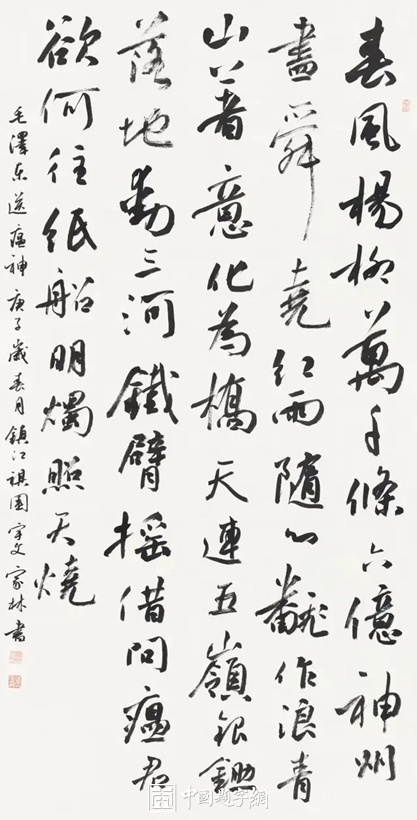 春風楊柳萬千條六億神州
盡舜堯紅雨隨心翻作浪青
山著意化為橋天連五嶺銀鋤
落地動三河鐵臂搖借問瘟君
欲何往紙船明燭照天燒
毛澤東送瘟神庚子歲春月鎮江祺園宇文家林書
中國題字網